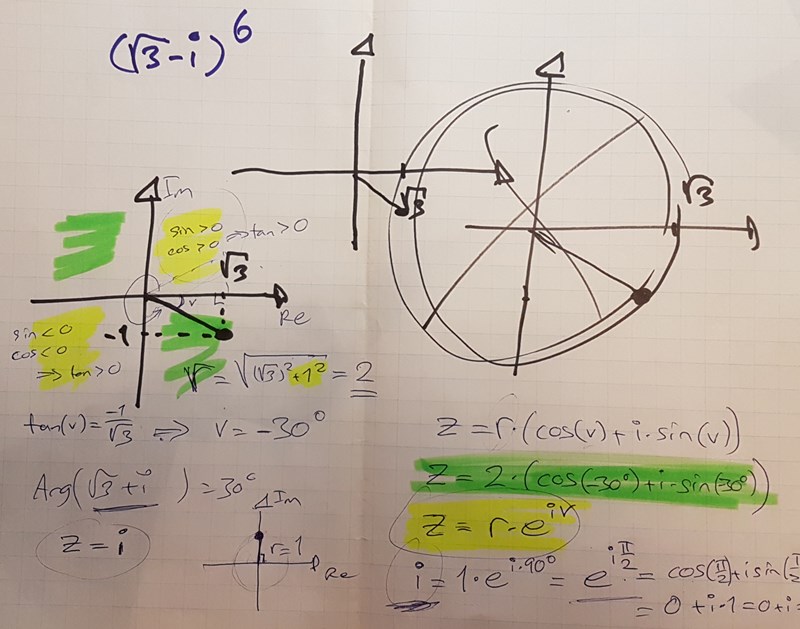 (√3-i)⁶
√3
√3
Im
sin>0
cos>0 ⇒ tan>0
√3
v
Re
-1
sin<0
cos<0
⇒ tan>0
r = √((√3)²+1²) = 2
tan(v) = -1/√3 ⇒ v = -30°
Arg(√3+i) = 30°
z = i
Im
r=1
Re
z = r·(cos(v)+i·sin(v))
z = 2·(cos(-30°)+i·sin(-30°))
z = r·e^{iv}
i = 1·e^{i·90°} = e^{iπ/2} = cos(π/2)+i sin(π/2
= 0+i·1=0+i=